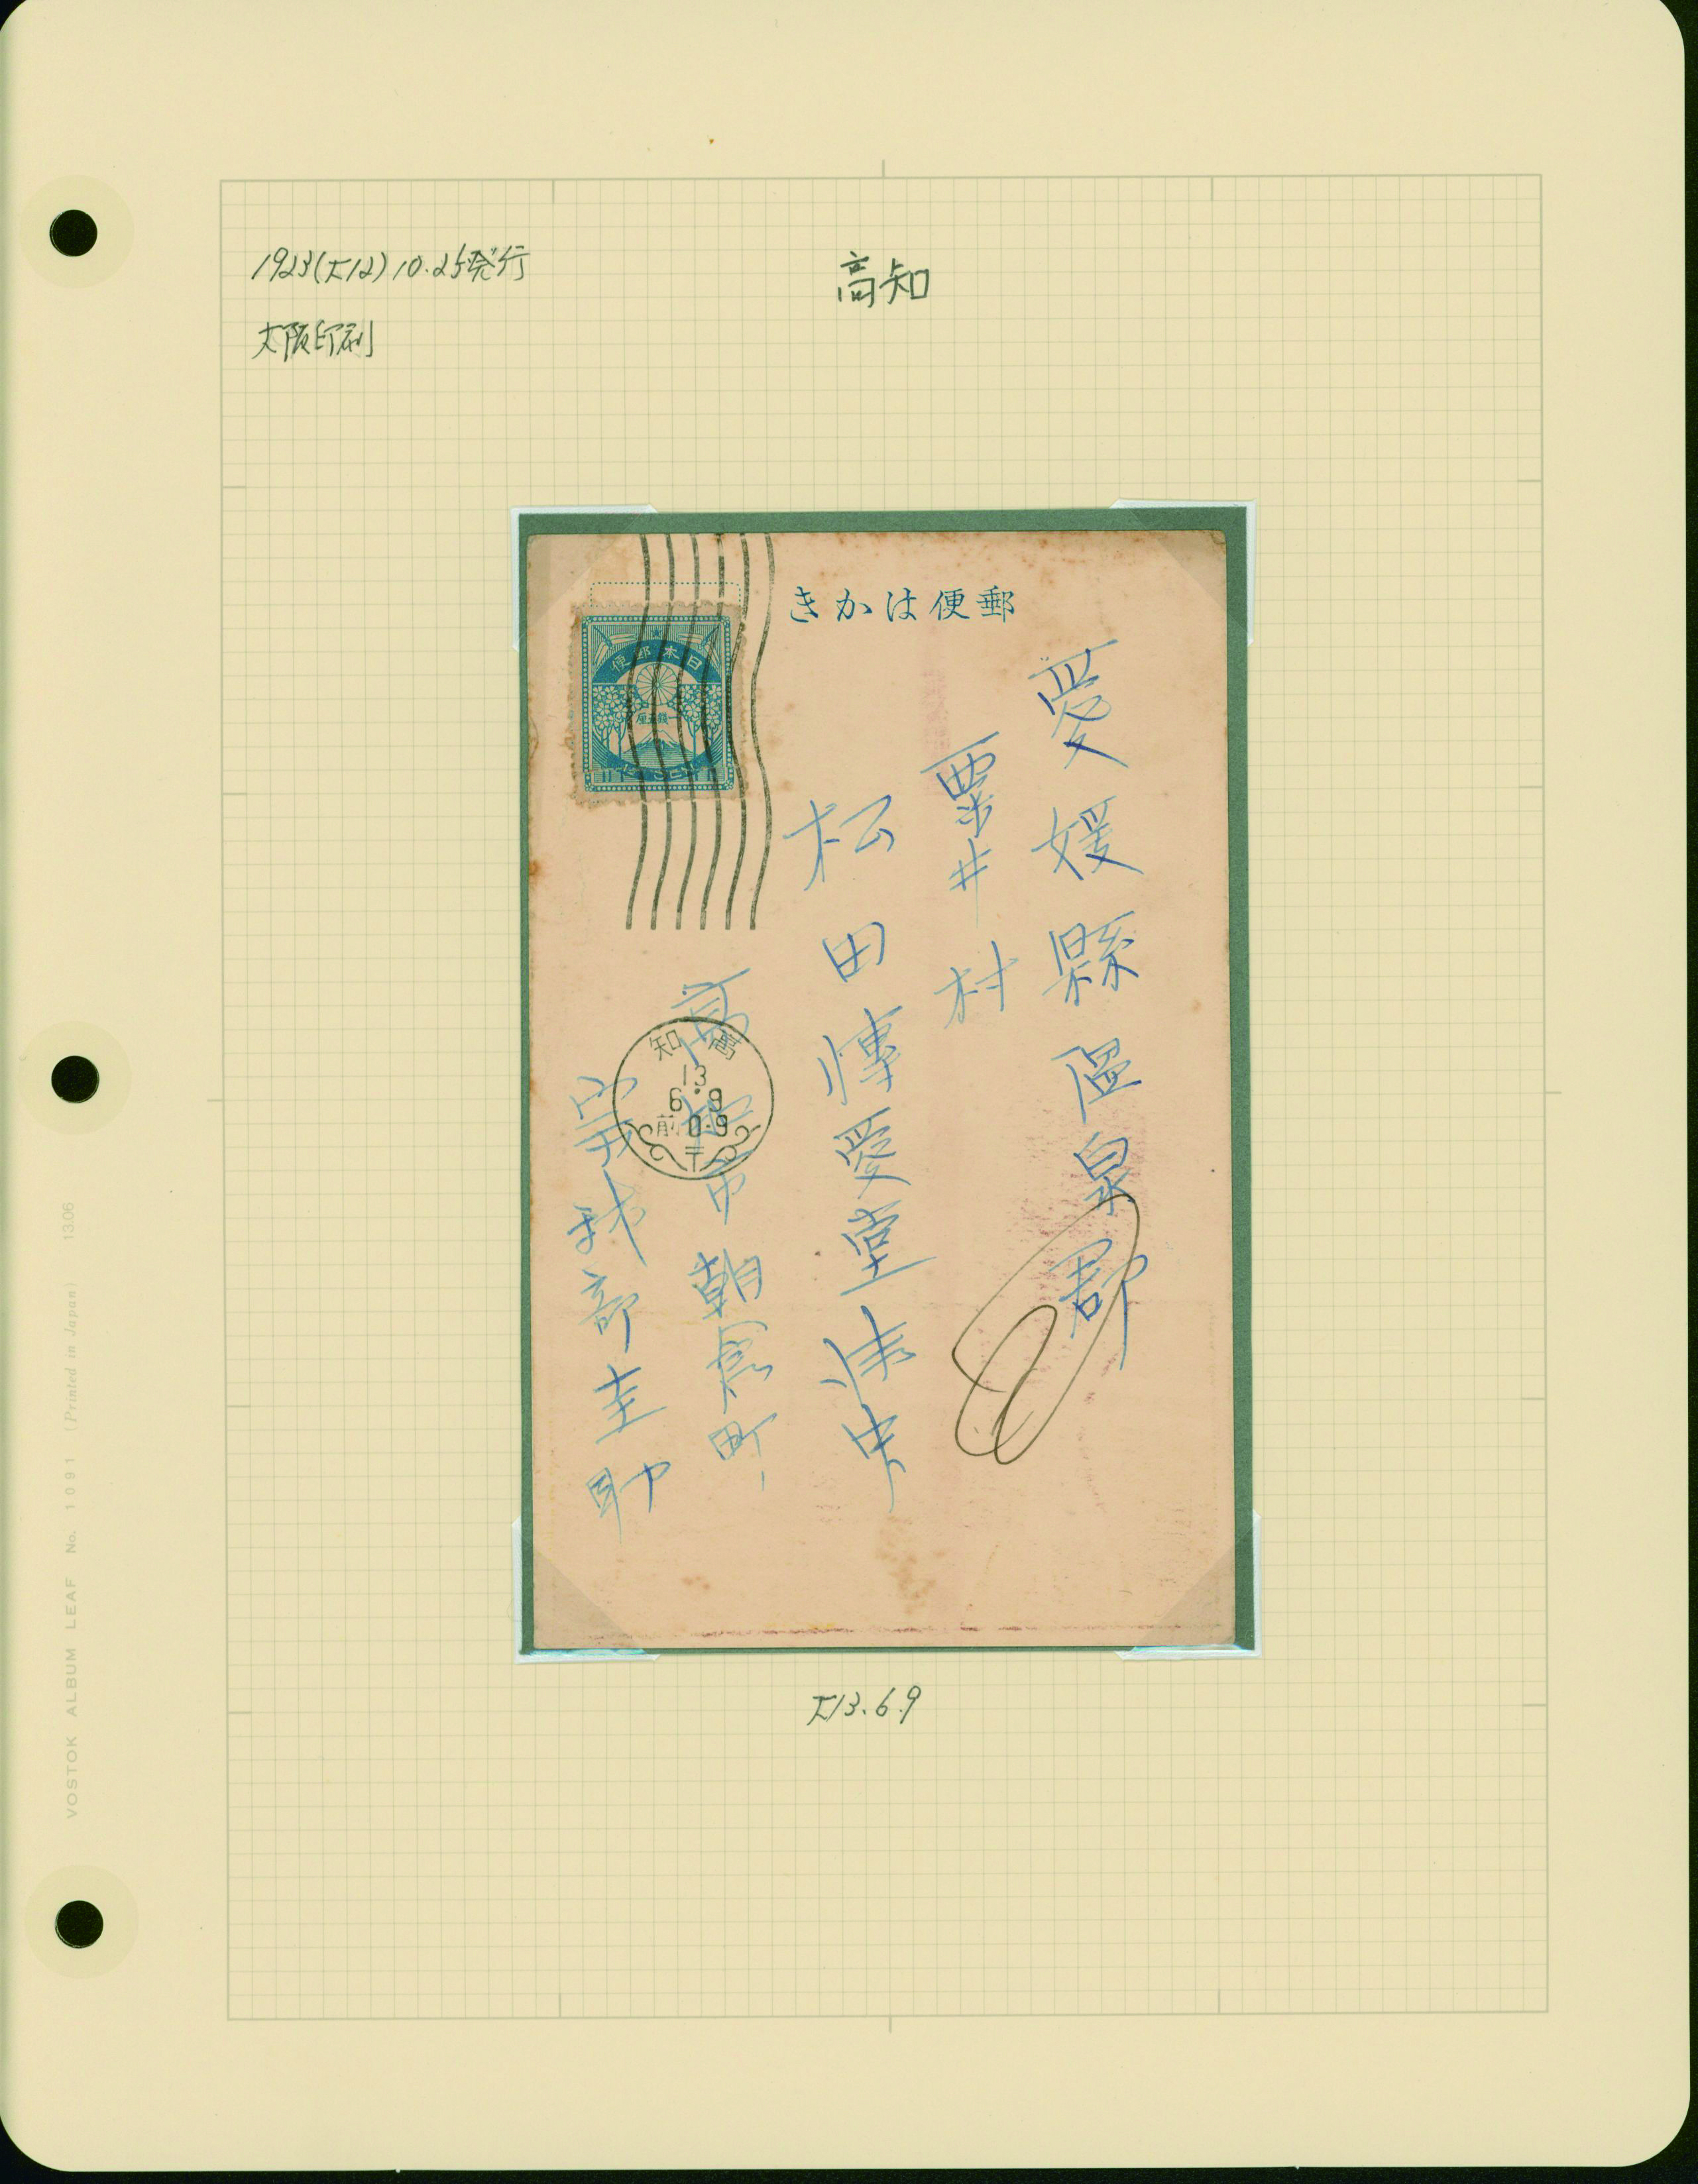 1923(大12)10.25発行
高知
大阪印刷
きかは便郵
便郵本日
厘五銭一
愛媛縣温泉郡
粟井村
松田博愛堂御中
高知市朝倉町
我部圭助
知高
13
6.9
前0-9
〒
大13.6.9
VOSTOK ALBUM LEAF No. 1091 (Printed in Japan) 13.06